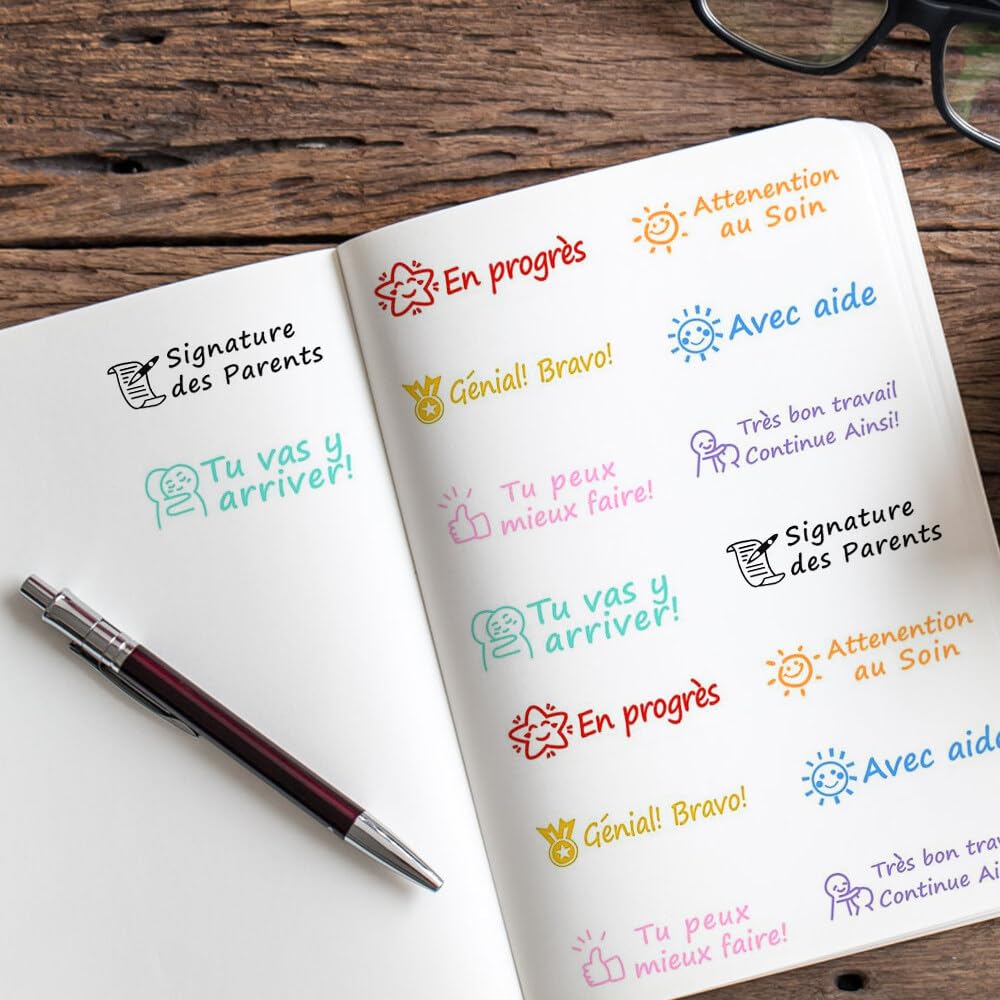 Signature
des Parents
Tu vas y
arriver!
En progrès
Attenention
au Soin
Génial! Bravo!
Avec aide
Tu peux
mieux faire!
Très bon travail
Continue Ainsi!
Tu vas y
arriver!
Signature
des Parents
En progrès
Attenention
au Soin
Génial! Bravo!
Avec aide
Tu peux
mieux faire!
Très bon
Continue